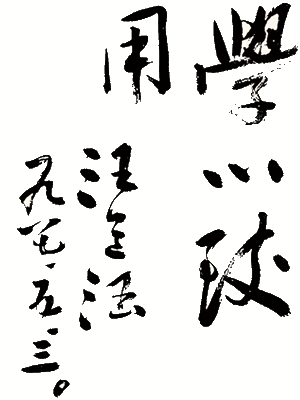 學以致
用
汪道涵
九七.五.三。